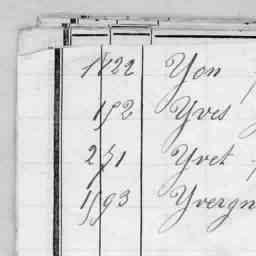 1822 Yon
152 Yves
251 Yvet
1593 Yvergn